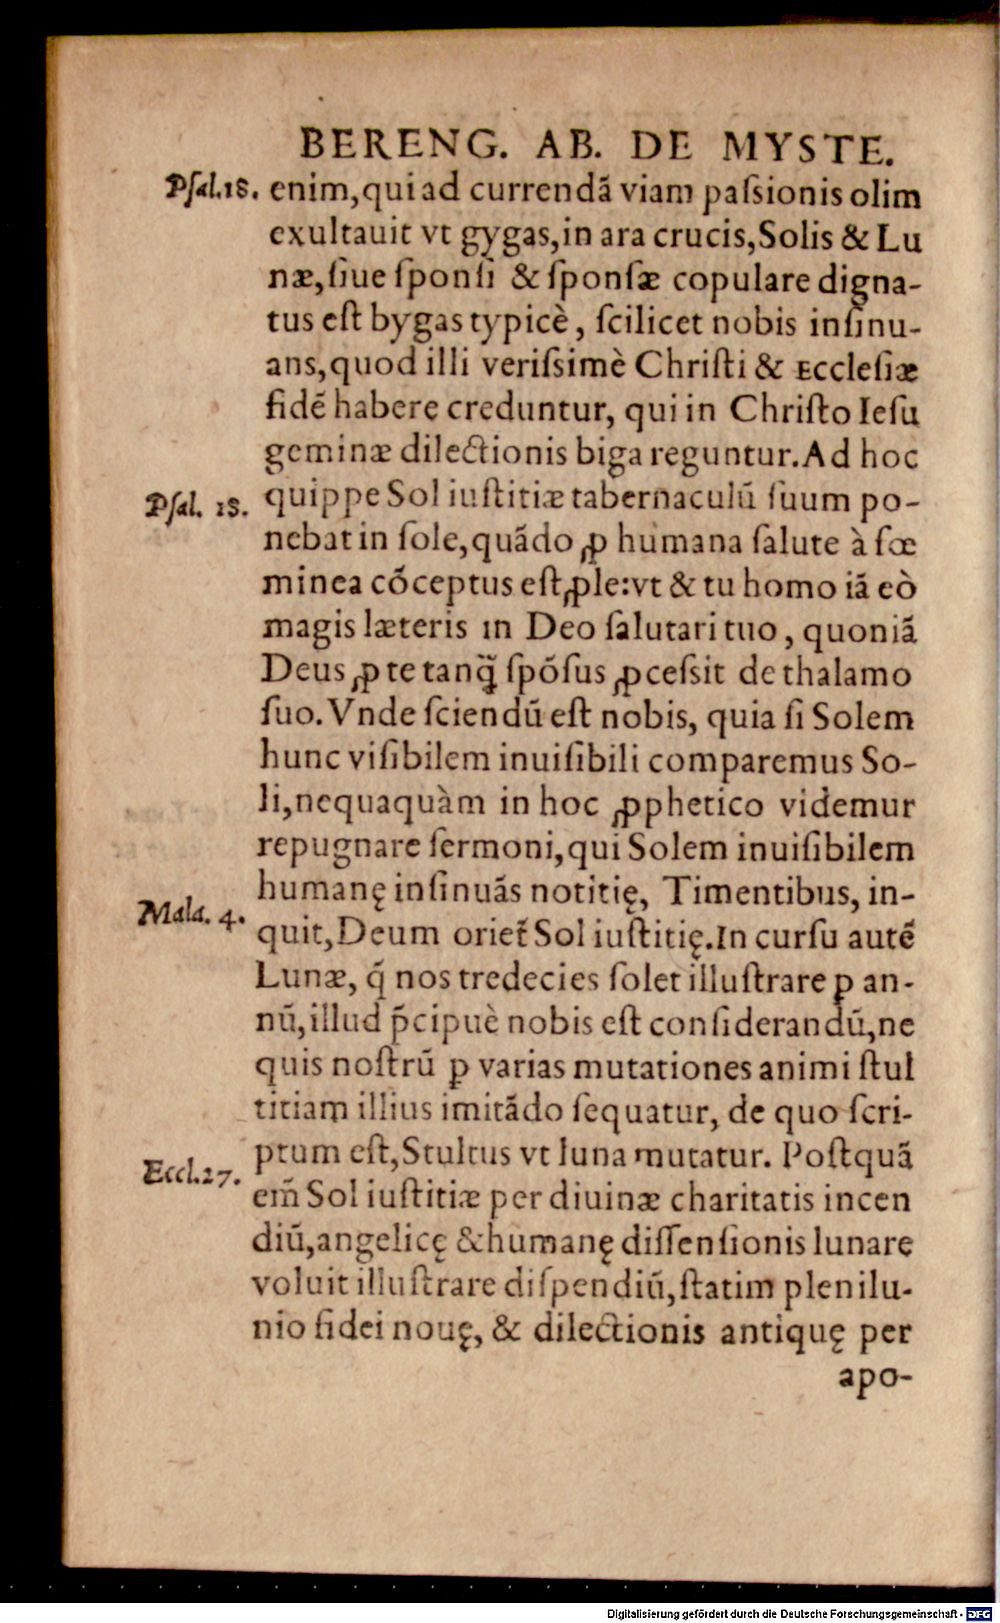 BERENG. AB. DE MYSTE.
Pſal.18. enim,qui ad currendã viam paſsionis olim
exultauit vt gygas,in ara crucis,Solis & Lu
næ,ſiue ſponſi & ſponſæ copulare digna-
tus eſt bygas typicè, ſcilicet nobis inſinu-
ans,quod illi veriſsimè Chriſti & Eccleſiæ
fidẽ habere creduntur, qui in Chriſto Ieſu
geminæ dilectionis biga reguntur.Ad hoc
Pſal. 18. quippe Sol iuſtitiæ tabernaculũ ſuum po-
nebat in ſole,quãdo ꝓ humana ſalute à fœ
minea cõceptus eſt ꝓle:vt & tu homo iã eò
magis læteris in Deo ſalutari tuo, quoniã
Deus ꝓ te tanq̃ ſpõſus ꝓceſsit de thalamo
ſuo.Vnde ſciendũ eſt nobis, quia ſi Solem
hunc viſibilem inuiſibili comparemus So-
li,nequaquàm in hoc ꝓphetico videmur
repugnare ſermoni,qui Solem inuiſibilem
humanę inſinuãs notitię, Timentibus, in-
Mala. 4. quit,Deum oriet̃ Sol iuſtitię.In curſu autẽ
Lunæ, q̃ nos tredecies ſolet illuſtrare ꝑ an-
nũ,illud p̃cipuè nobis eſt conſiderandũ,ne
quis noſtrũ ꝑ varias mutationes animi ſtul
titiam illius imitãdo ſequatur, de quo ſcri-
Eccl.27. ptum eſt,Stultus vt luna mutatur. Poſtquã
em̃ Sol iuſtitiæ per diuinæ charitatis incen
diũ,angelicę & humanę diſſenſionis lunare
voluit illuſtrare diſpendiũ,ſtatim plenilu-
nio fidei nouę, & dilectionis antiquę per
apo-
Digitalisierung gefördert durch die Deutsche Forschungsgemeinschaft - DFG